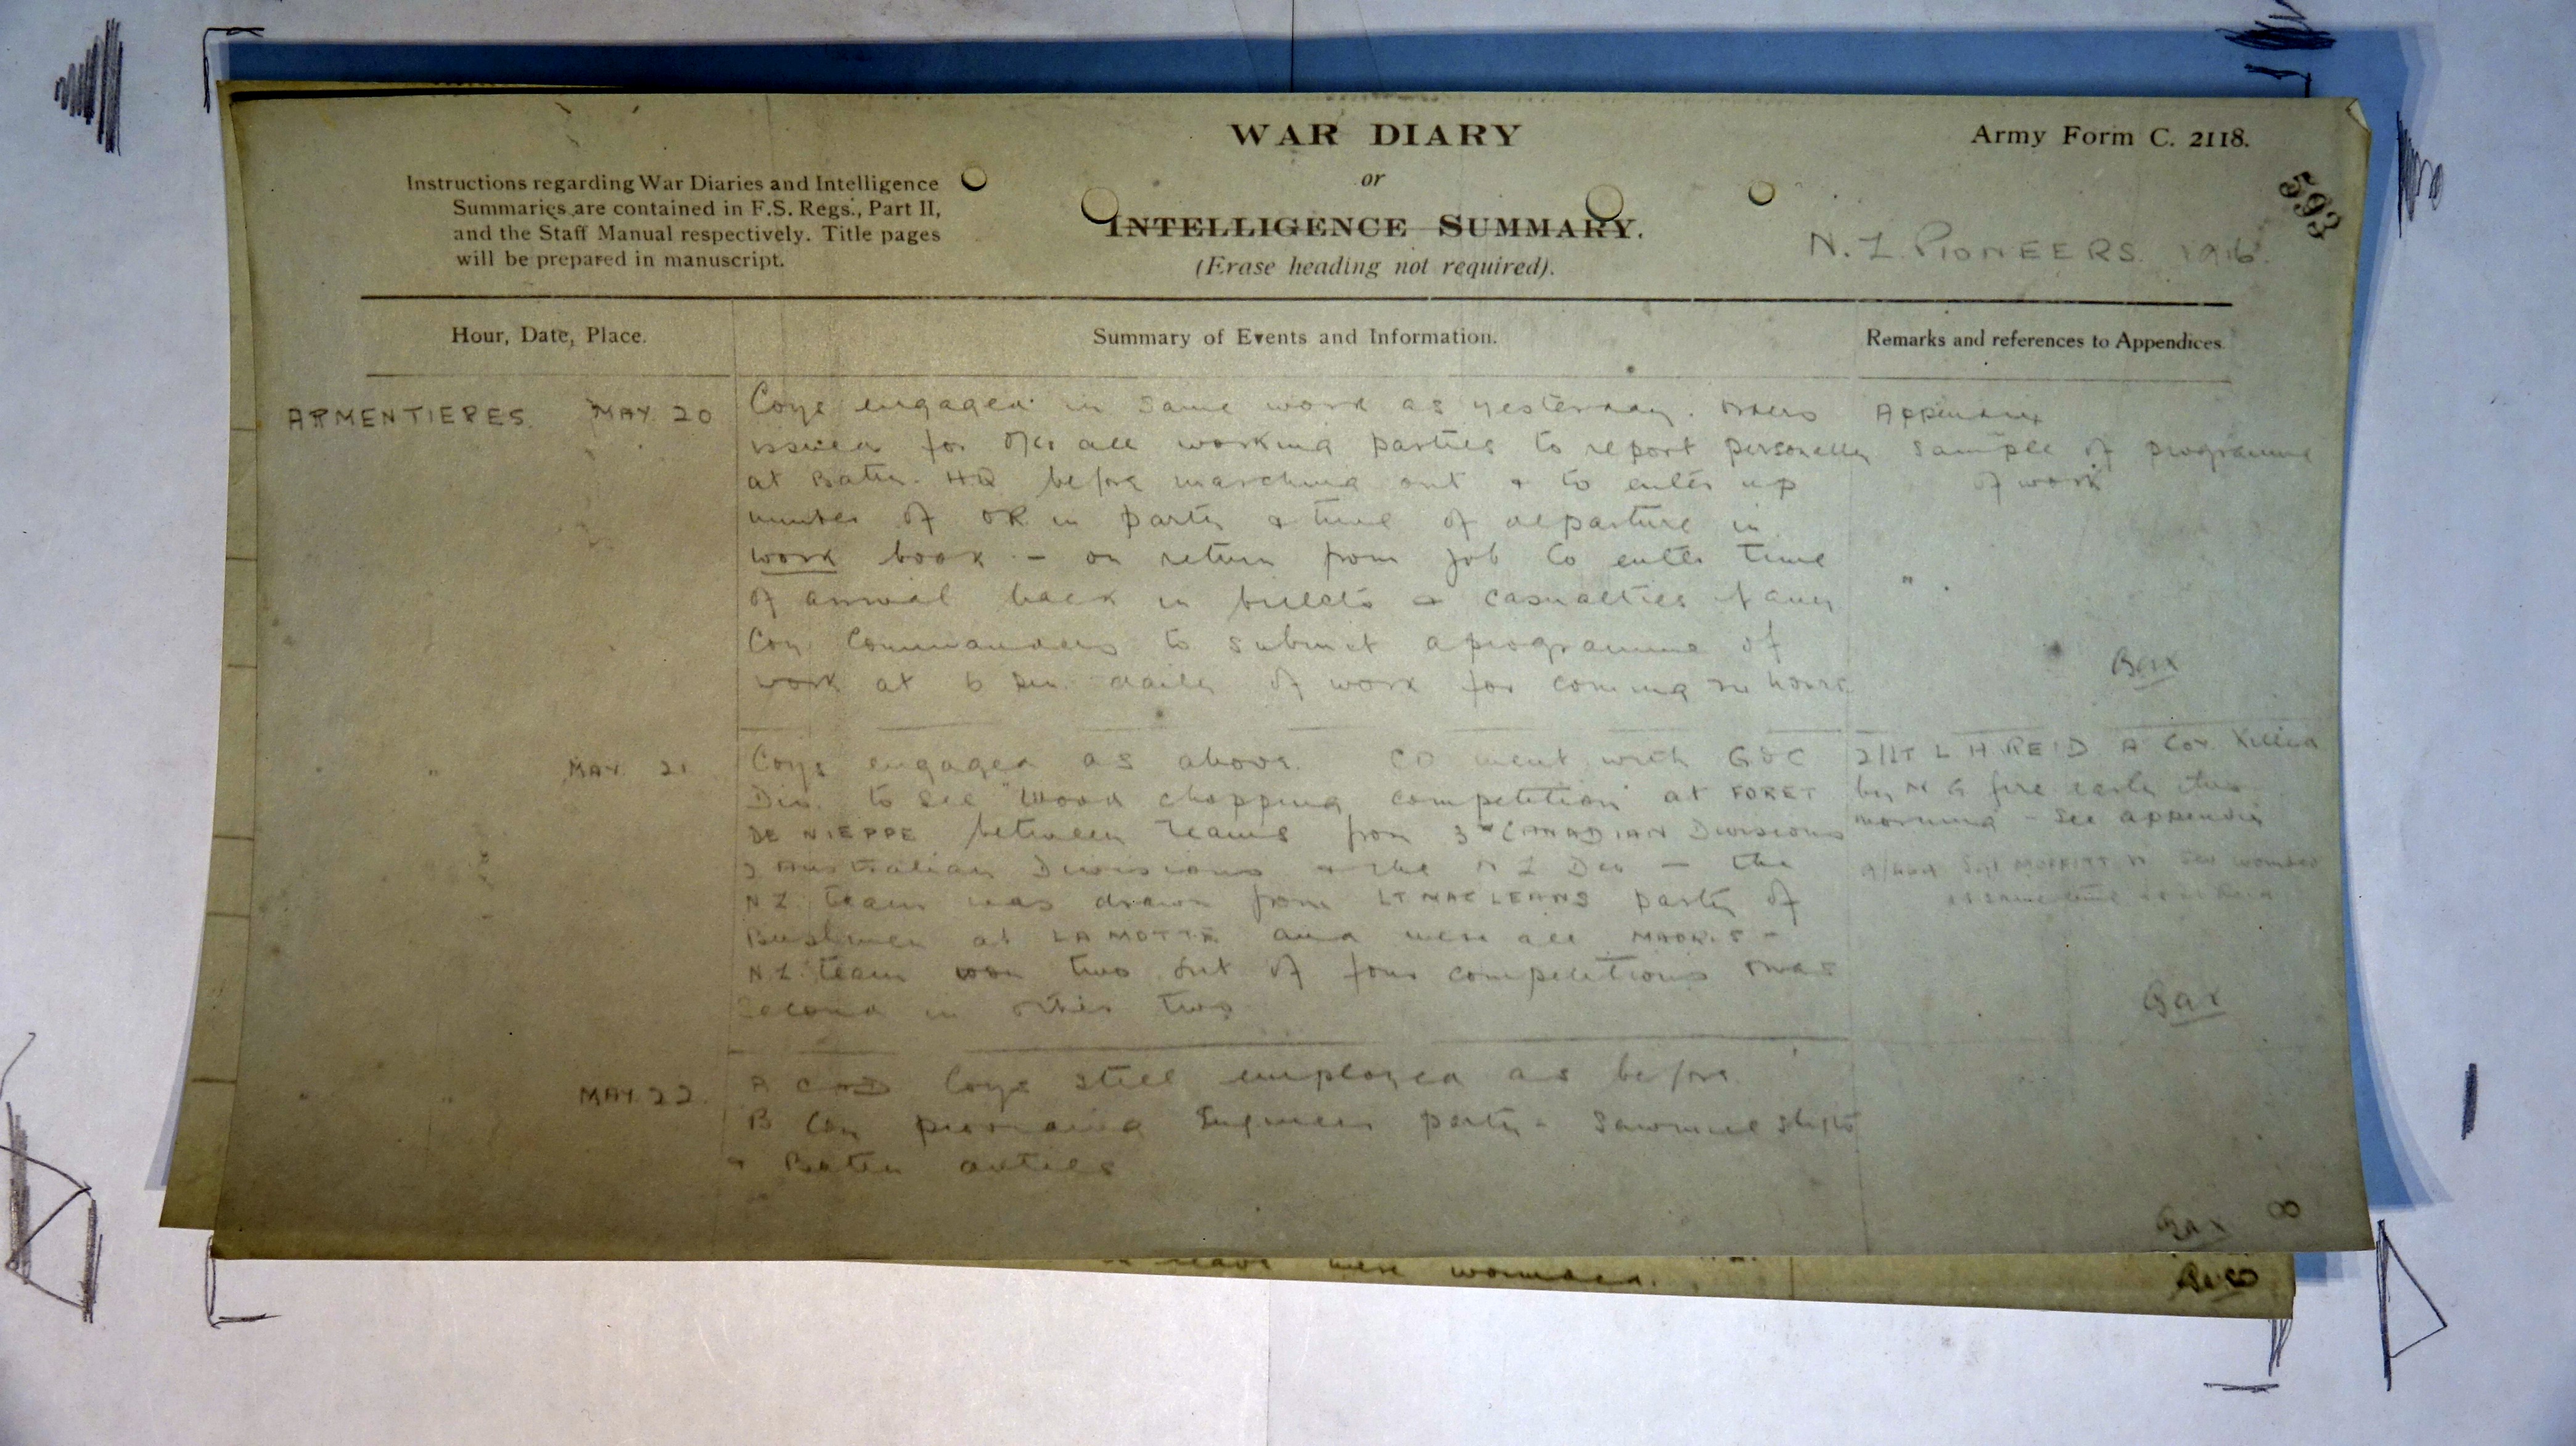 WAR DIARY
or
INTELLIGENCE SUMMARY.
(Erase heading not required).
Army Form C. 2118.
593
Instructions regarding War Diaries and Intelligence
Summaries are contained in F.S. Regs., Part II,
and the Staff Manual respectively. Title pages
will be prepared in manuscript.
N.Z. PIONEERS. 1916.
Hour, Date, Place.
Summary of Events and Information.
Remarks and references to Appendices.
ARMENTIERES. MAY. 20
Coys engaged in same work as yesterday. Orders
issued for O/Cs all working parties to report personally
at Battn. HQ before marching out & to enter up
number of OR in party & time of departure in
work book - on return from job to enter time
of arrival back in billets & casualties if any
Coy Commanders to submit a programme of
work at 6 pm. daily of work for coming 24 hours
Appendix
sample of programme
of work
"
" MAY. 21
Coys engaged as above. CO went with GOC
Div. to see "Wood chopping competition" at FORET
DE NIEPPE between teams from 3 CANADIAN Divisions
2 Australian Divisions & the N Z Div - the
N Z team was drawn from LT MACLEANS party of
Bushmen at LA MOTTE and were all MAORIS -
N.Z. team won two out of four competitions & was
second in other two
2/LT L H REID A Coy. Killed
by M G fire early this
morning - see appendix
Sgt MOFFITT wounded
at same time as Lt Reid
" MAY. 22.
A C & D Coys still employed as before.
B Coy providing Engineer party - Sawmill shifts
& Battn duties
8
were wounded.